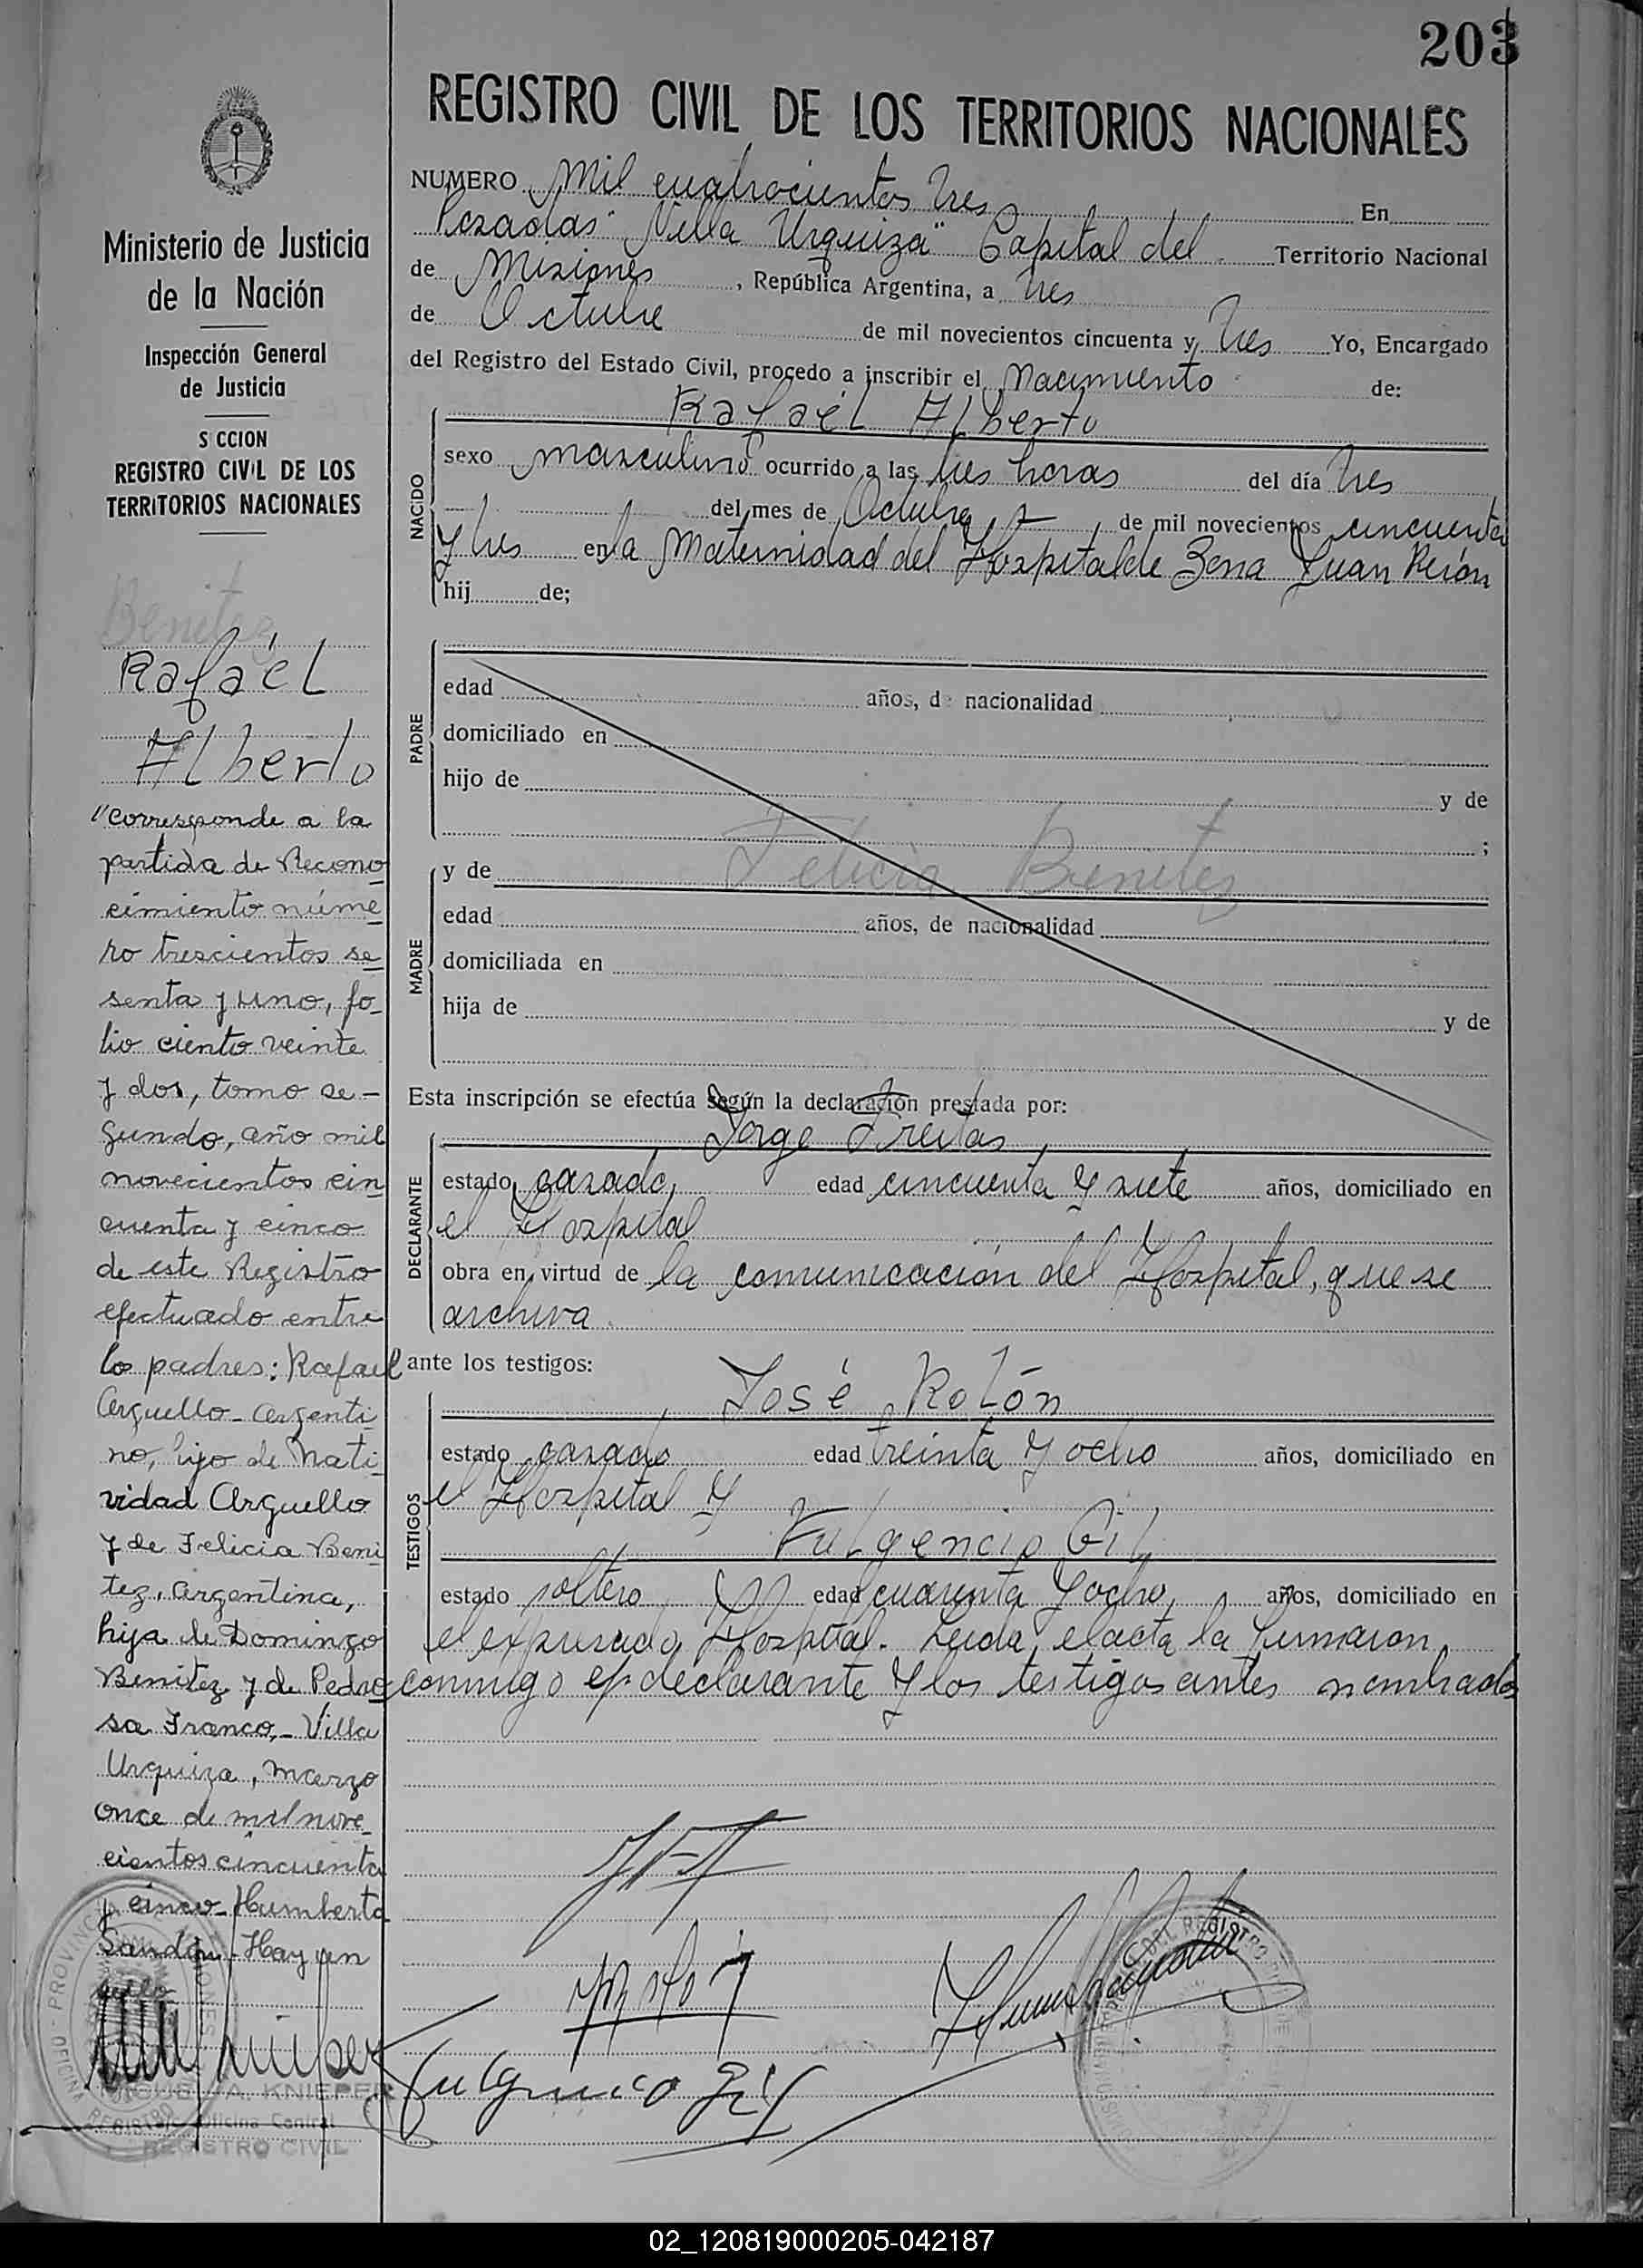 203
REGISTRO CIVIL DE LOS TERRITORIOS NACIONALES
NUMERO Mil cuatrocientos tres En
Posadas "Villa Urquiza" Capital del Territorio Nacional
de Misiones, República Argentina, a tres
de Octubre de mil novecientos cincuenta y tres Yo, Encargado
del Registro del Estado Civil, procedo a inscribir el Nacimiento de:
Rafaél Alberto
NACIDO
sexo masculino ocurrido a las tres horas del día tres
del mes de Octubre de mil novecientos cincuenta
y tres en la Maternidad del Hospital de Zona Juan Perón
hij de;
PADRE
edad años, d nacionalidad
domiciliado en
hijo de y de
;
MADRE
y de Felicia Benitez
edad años, de nacionalidad
domiciliada en
hija de y de
Esta inscripción se efectúa según la declaración prestada por:
DECLARANTE
Jorge Freitas
estado casado, edad cincuenta y siete años, domiciliado en
el Hospital
obra en virtud de la comunicación del Hospital, que se
archiva
ante los testigos:
TESTIGOS
José Rolón
estado casado edad treinta y ocho años, domiciliado en
el Hospital y
Fulgencio Gil
estado soltero edad cuarenta y ocho, años, domiciliado en
el expresado Hospital. Leída el acta la firmaron
conmigo el declarante y los testigos antes nombrados
Fulgencio Gil
Ministerio de Justicia
de la Nación
Inspección General
de Justicia
S CCION
REGISTRO CIVIL DE LOS
TERRITORIOS NACIONALES
Benitez
Rafaél
Alberto
"Corresponde a la
partida de Recono
cimiento núme
ro trescientos se
senta y uno, fo
lio ciento veinte
y dos, tomo se-
gundo, año mil
novecientos cin
cuenta y cinco
de este Registro
efectuado entre
lo padres: Rafael
Arguello - Argenti
no, hijo de Nati
vidad Arguello
y de Felicia Beni
tez, Argentina,
hija de Domingo
Benitez y de Pedro
sa Franco,- Villa
Urquiza, marzo
once de mil nove
cientos cincuenta
y cinco - Humberto
Hay un
sello
MIGUEL A. KNIEPER
Oficina Central
REGISTRO CIVIL
02_120819000205-042187